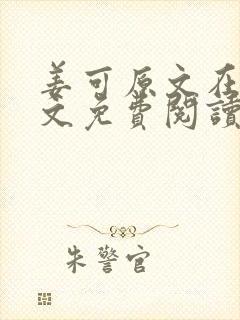 姜可原文在
文免費閱讀
朱警官